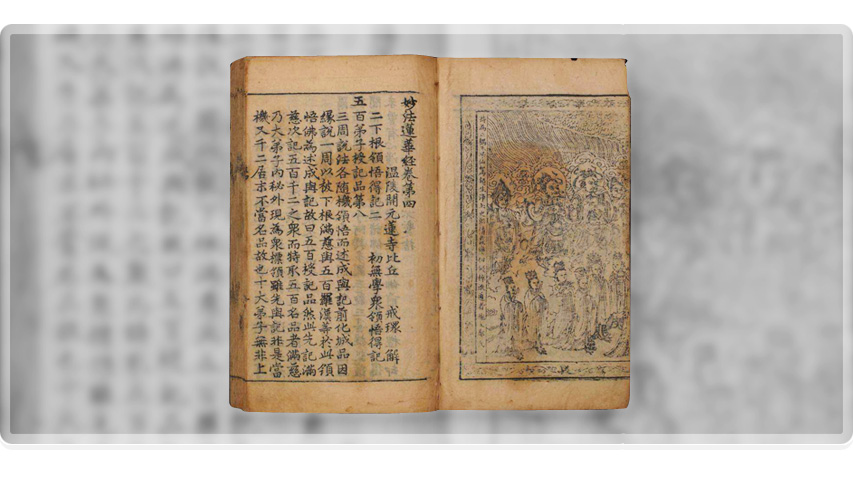 妙法蓮華經卷第四
溫陵開元蓮寺比丘 戒環 解
二下根領悟得記二 初無學衆領悟得記
五百弟子授記品第八
三周說法各隨機領悟而述成與記前化城品因
緣說一周以被下根滿慈與五百羅漢等於此領
悟佛為述成與記故曰五百授記品然此先記滿
慈次記五百千二之衆而特取五百名品者滿慈
乃大弟子內秘外現為衆攢領雖先與記非是當
機又千二居末不當名品故也十大弟子無非上